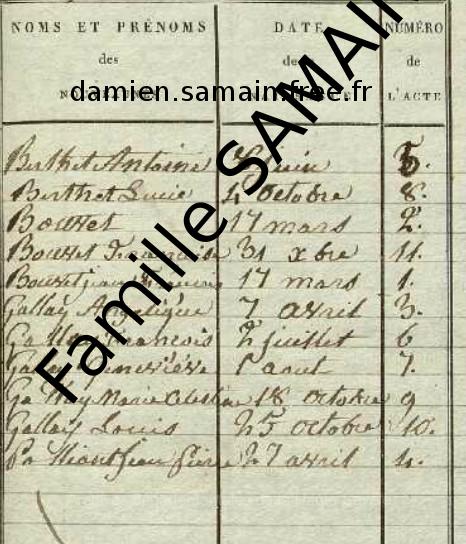 NOMS ET PRÉNOMS DATE NUMÉRO
des de de
damien.samain.free.fr L'ACTE
Famille SAMAIN
Berthet Antoine juin 5.
Berthet Lucie 4 octobre 8.
Bouvet 17 mars 2.
Bouvet Francoise 31 xbre 11.
Bouvet jean 17 mars 1.
Gallay Angelique 7 avril 3.
Gallay Francois 2 juillet 6
Gallay Geneviève 1 aout 7.
Gallay Marie Celestine 18 octobre 9
Gallay Louis 25 octobre 10.
jean pierre 27 avril 4.